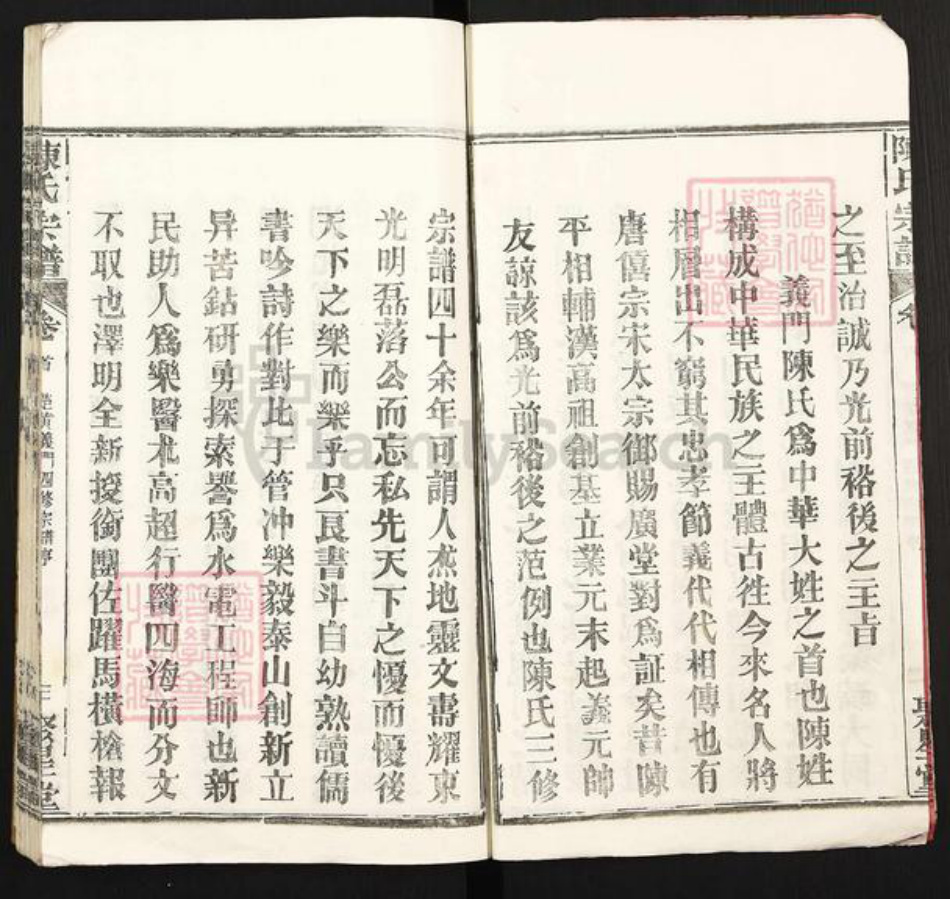 陳氏宗譜
之至治誠乃光前裕後之主旨
義門陳氏爲中華大姓之首也陳姓
構成中華民族之主體古徃今來名人將
相層出不窮其忠孝節義代代相傳也有
唐僖宗宋太宗御賜廣堂對爲証矣昔陳
平相輔漢高祖創基立業元末起義元帥
友諒該爲光前裕後之范例也陳氏三修
宗譜四十余年可謂人杰地靈文壽耀東
光明磊落公而忘私先天下之憂而憂後
天下之樂而樂乎只艮書斗自幼熟讀儒
書吟詩作對比于管冲樂毅泰山創新立
异苦鉆研勇探索譽爲水電工程師也新
民助人爲樂醫术高超行醫四海而分文
不取也澤明全新授銜團佐躍馬橫槍報
陳氏宗譜
卷首
黄義門四修宗譜序
三
聚星堂
FamilySearch